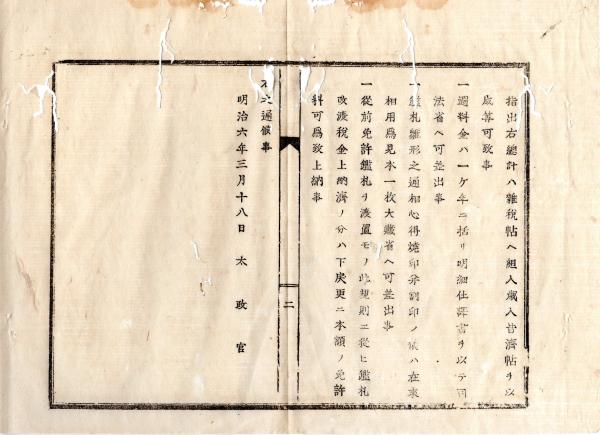 指出右總計ハ雜税帖ヘ組入歳入皆濟帖ヲ以
成算可致事
一過料金ハ一ケ年ニ括リ明細仕譯書ヲ以テ司
法省ヘ可差出事
一鑑札雛形之通相心得燒印并割印ノ儀ハ在來
相用爲見本一枚大藏省ヘ可差出事
一從前免許鑑札ヲ渡置モノ此規則ニ從ヒ鑑札
改渡税金上納濟ノ分ハ下戻更ニ本額ノ免許
料可爲致上納事
二
右之通候事
明治六年三月十八日 太政官